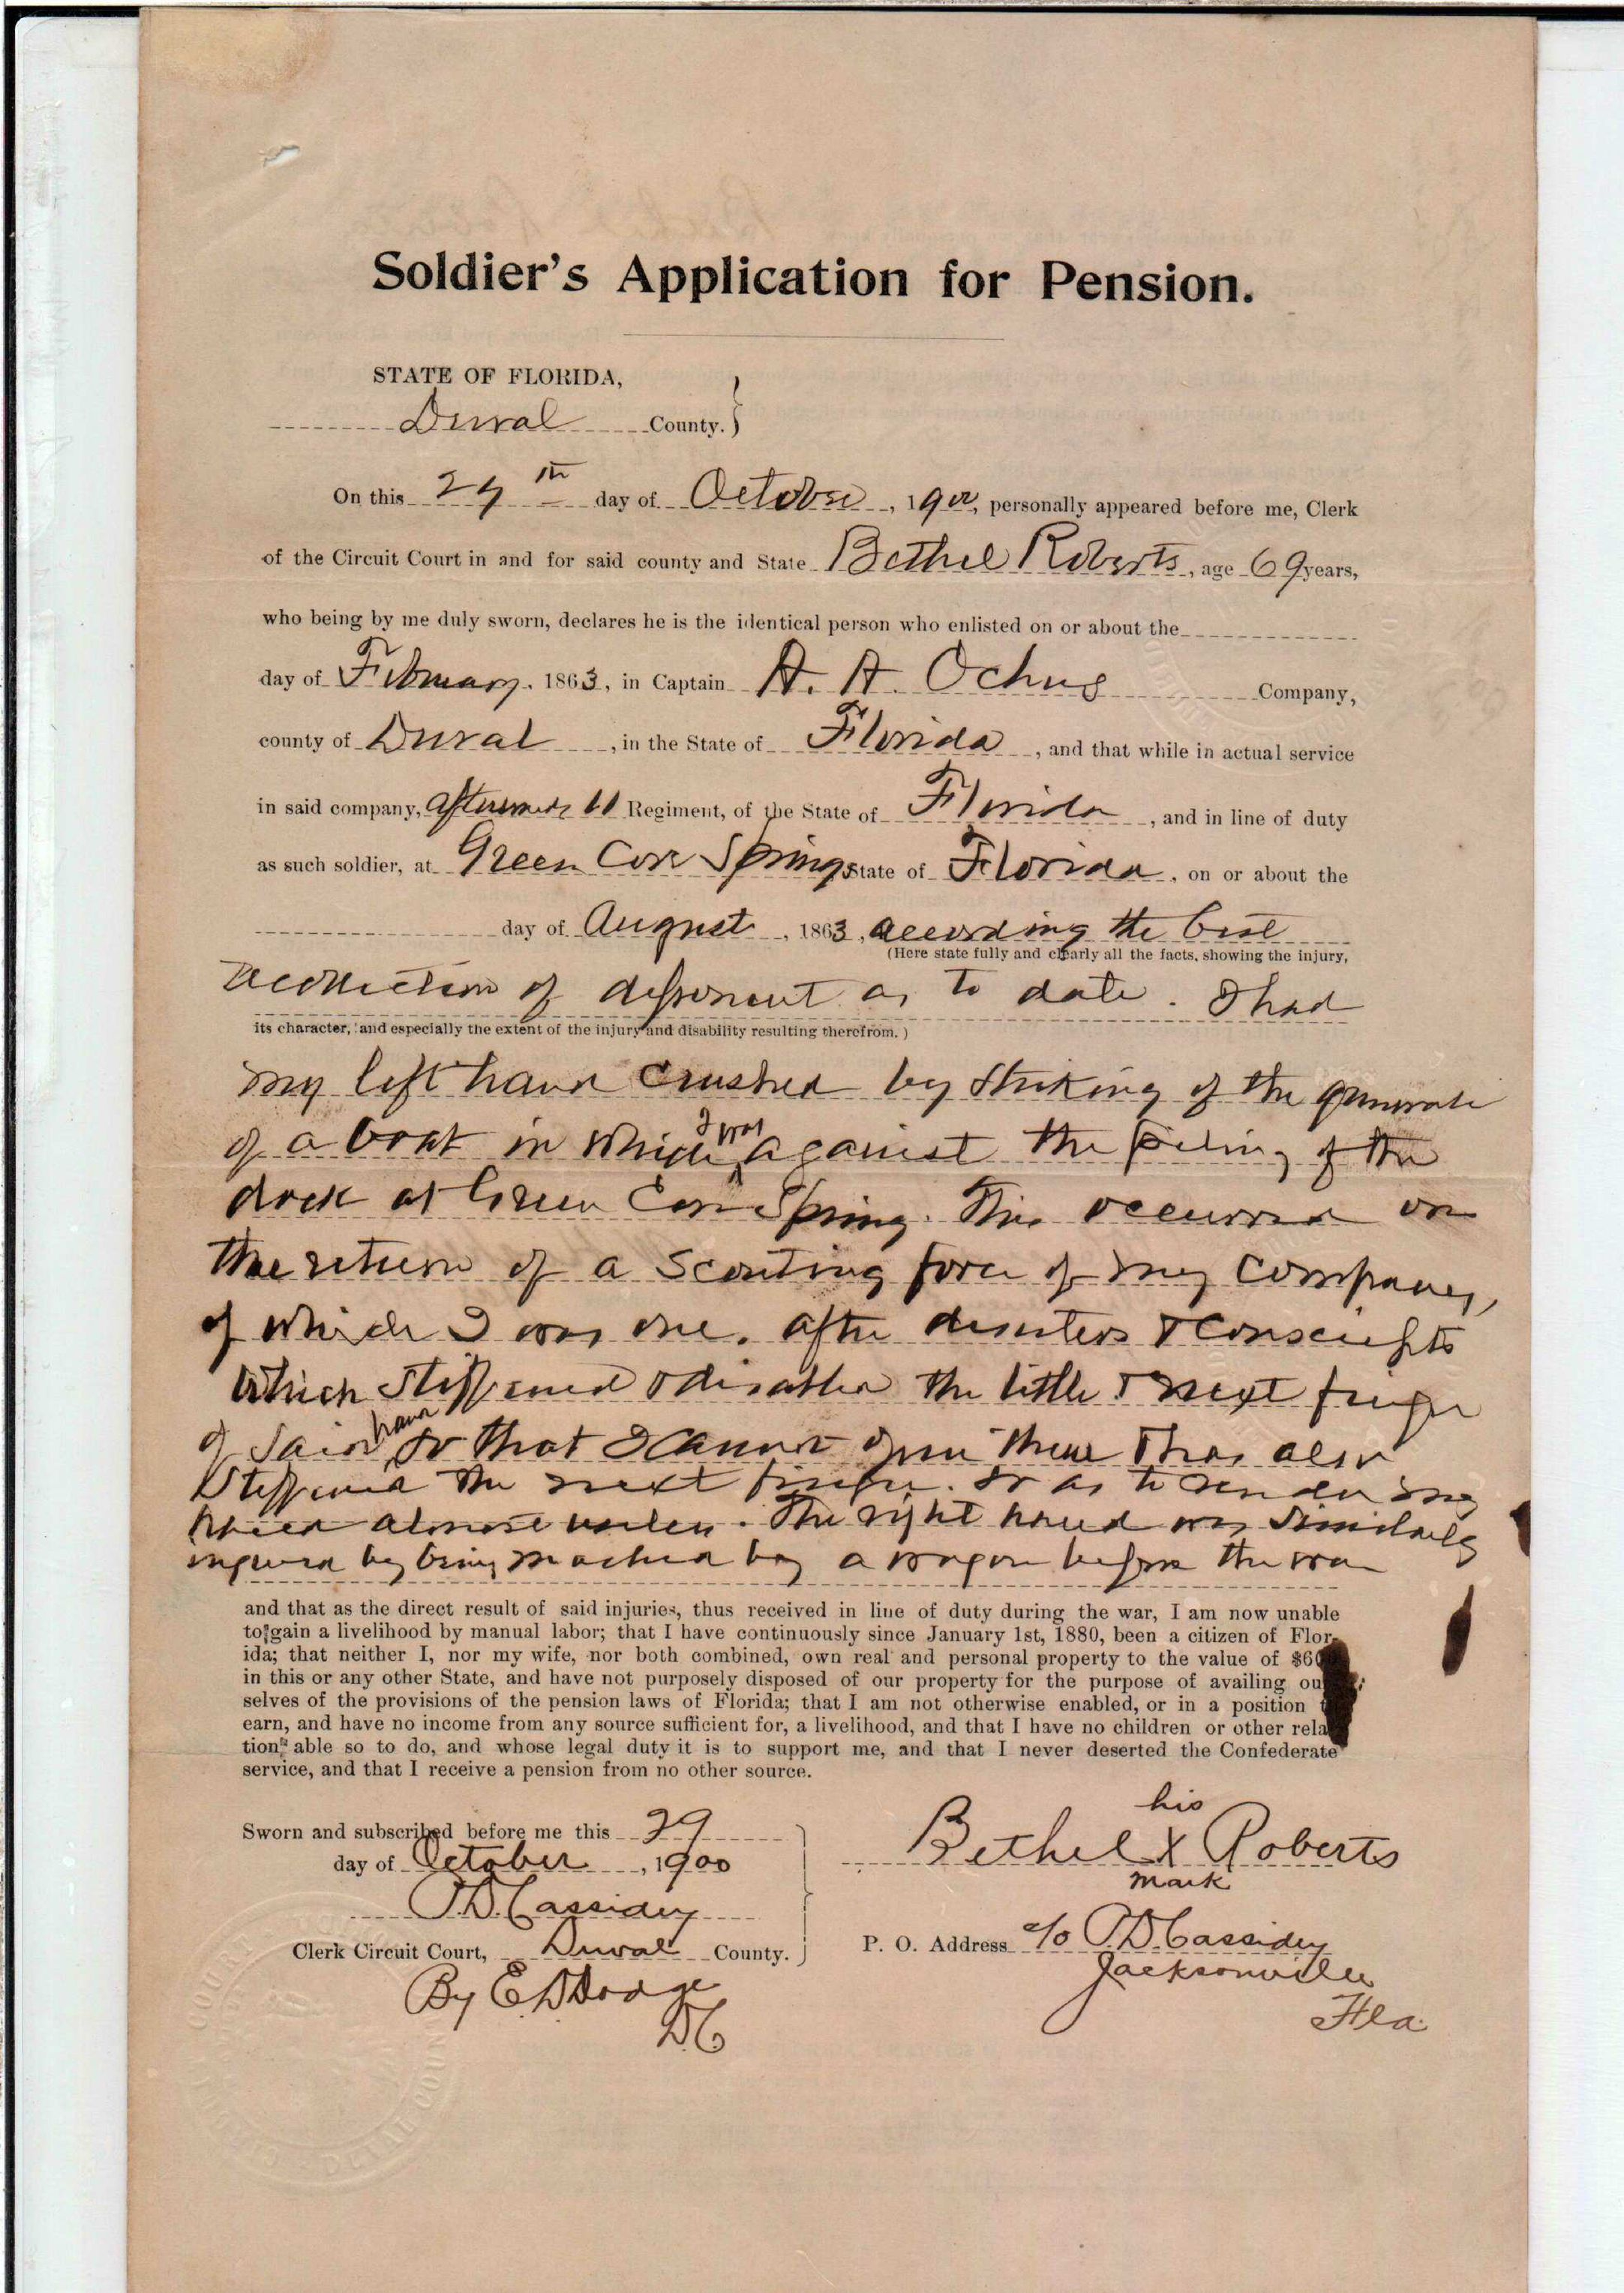 Soldier's Application for Pension.
STATE OF FLORIDA,
Duval County. }
On this 29th day of October, 1900, personally appeared before me, Clerk
of the Circuit Court in and for said county and State Bethel Roberts, age 69 years,
who being by me duly sworn, declares he is the identical person who enlisted on or about the
day of February, 1863, in Captain A. A. Ochus Company,
county of Duval, in the State of Florida, and that while in actual service
in said company, afterwards 11 Regiment, of the State of Florida, and in line of duty
as such soldier, at Green Cove Spring State of Florida, on or about the
day of August, 1863, according the best
(Here state fully and clearly all the facts, showing the injury,
recollection of deponent as to date. I had
its character, and especially the extent of the injury and disability resulting therefrom.)
my left hand crushed by striking of the gunwale
of a boat in which I was against the piling of the
dock at Green Cove Spring. This occurred on
the return of a Scouting force of my company,
of which I was one, after deserters & conscripts
which stiffened & disabled the little & next finger
of said hand so that I cannot open them & has also
stiffened the next finger. so as to render my
hand almost useless. The right hand was similarly
injured by being mashed by a wagon before the war
and that as the direct result of said injuries, thus received in line of duty during the war, I am now unable
to gain a livelihood by manual labor; that I have continuously since January 1st, 1880, been a citizen of Flor-
ida; that neither I, nor my wife, nor both combined, own real and personal property to the value of $60
in this or any other State, and have not purposely disposed of our property for the purpose of availing ou
selves of the provisions of the pension laws of Florida; that I am not otherwise enabled, or in a position
earn, and have no income from any source sufficient for, a livelihood, and that I have no children or other rela
tions able so to do, and whose legal duty it is to support me, and that I never deserted the Confederate
service, and that I receive a pension from no other source.
Sworn and subscribed before me this 29
day of October, 1900
P.D. Cassidey
Clerk Circuit Court, Duval County.
By E. D Dodge
D.C.
his
Bethel X Roberts
mark
P. O. Address c/o P.D. Cassidey
Jacksonville
Fla.